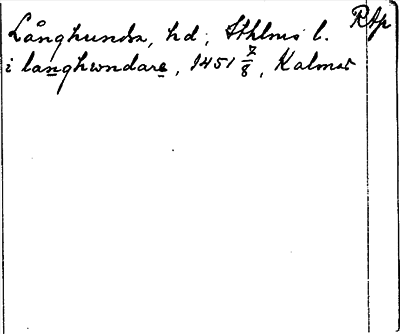 Långhundra, hd; Sthlms l. RAp
i langhwndare, 1451 7/8, Kalmar